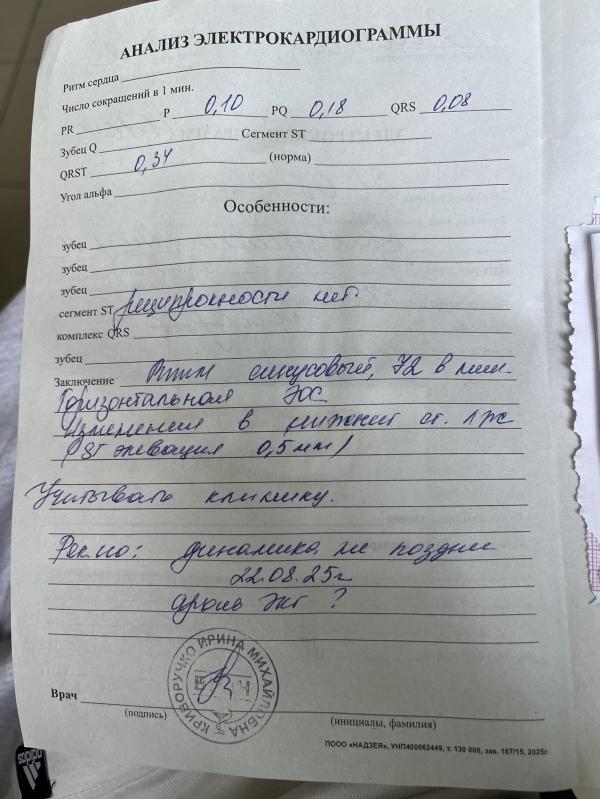 АНАЛИЗ ЭЛЕКТРОКАРДИОГРАММЫ
Ритм сердца
Число сокращений в 1 мин.
PR P 0,10 PQ 0,18 QRS 0,08
Зубец Q Сегмент ST
QRST 0,34 (норма)
Угол альфа
Особенности:
зубец
зубец
зубец
сегмент ST реципрокности нет.
комплекс QRS
зубец
Заключение Ритм синусовый, 72 в мин.
Горизонтальная ЭОС
Изменения в нижней ст. ЛЖ
(ST элевация 0,5 мм)
Учитывать клинику.
Рек-но: динамика не позднее
22.08.25г
архив ЭКГ ?
КРИВОРУЧКО ИРИНА МИХАЙЛОВНА
Врач
(подпись) (инициалы, фамилия)
ПООО «НАДЗЕЯ», УНП400062449, т. 130 000, зак. 187/15, 2025г.
adidas